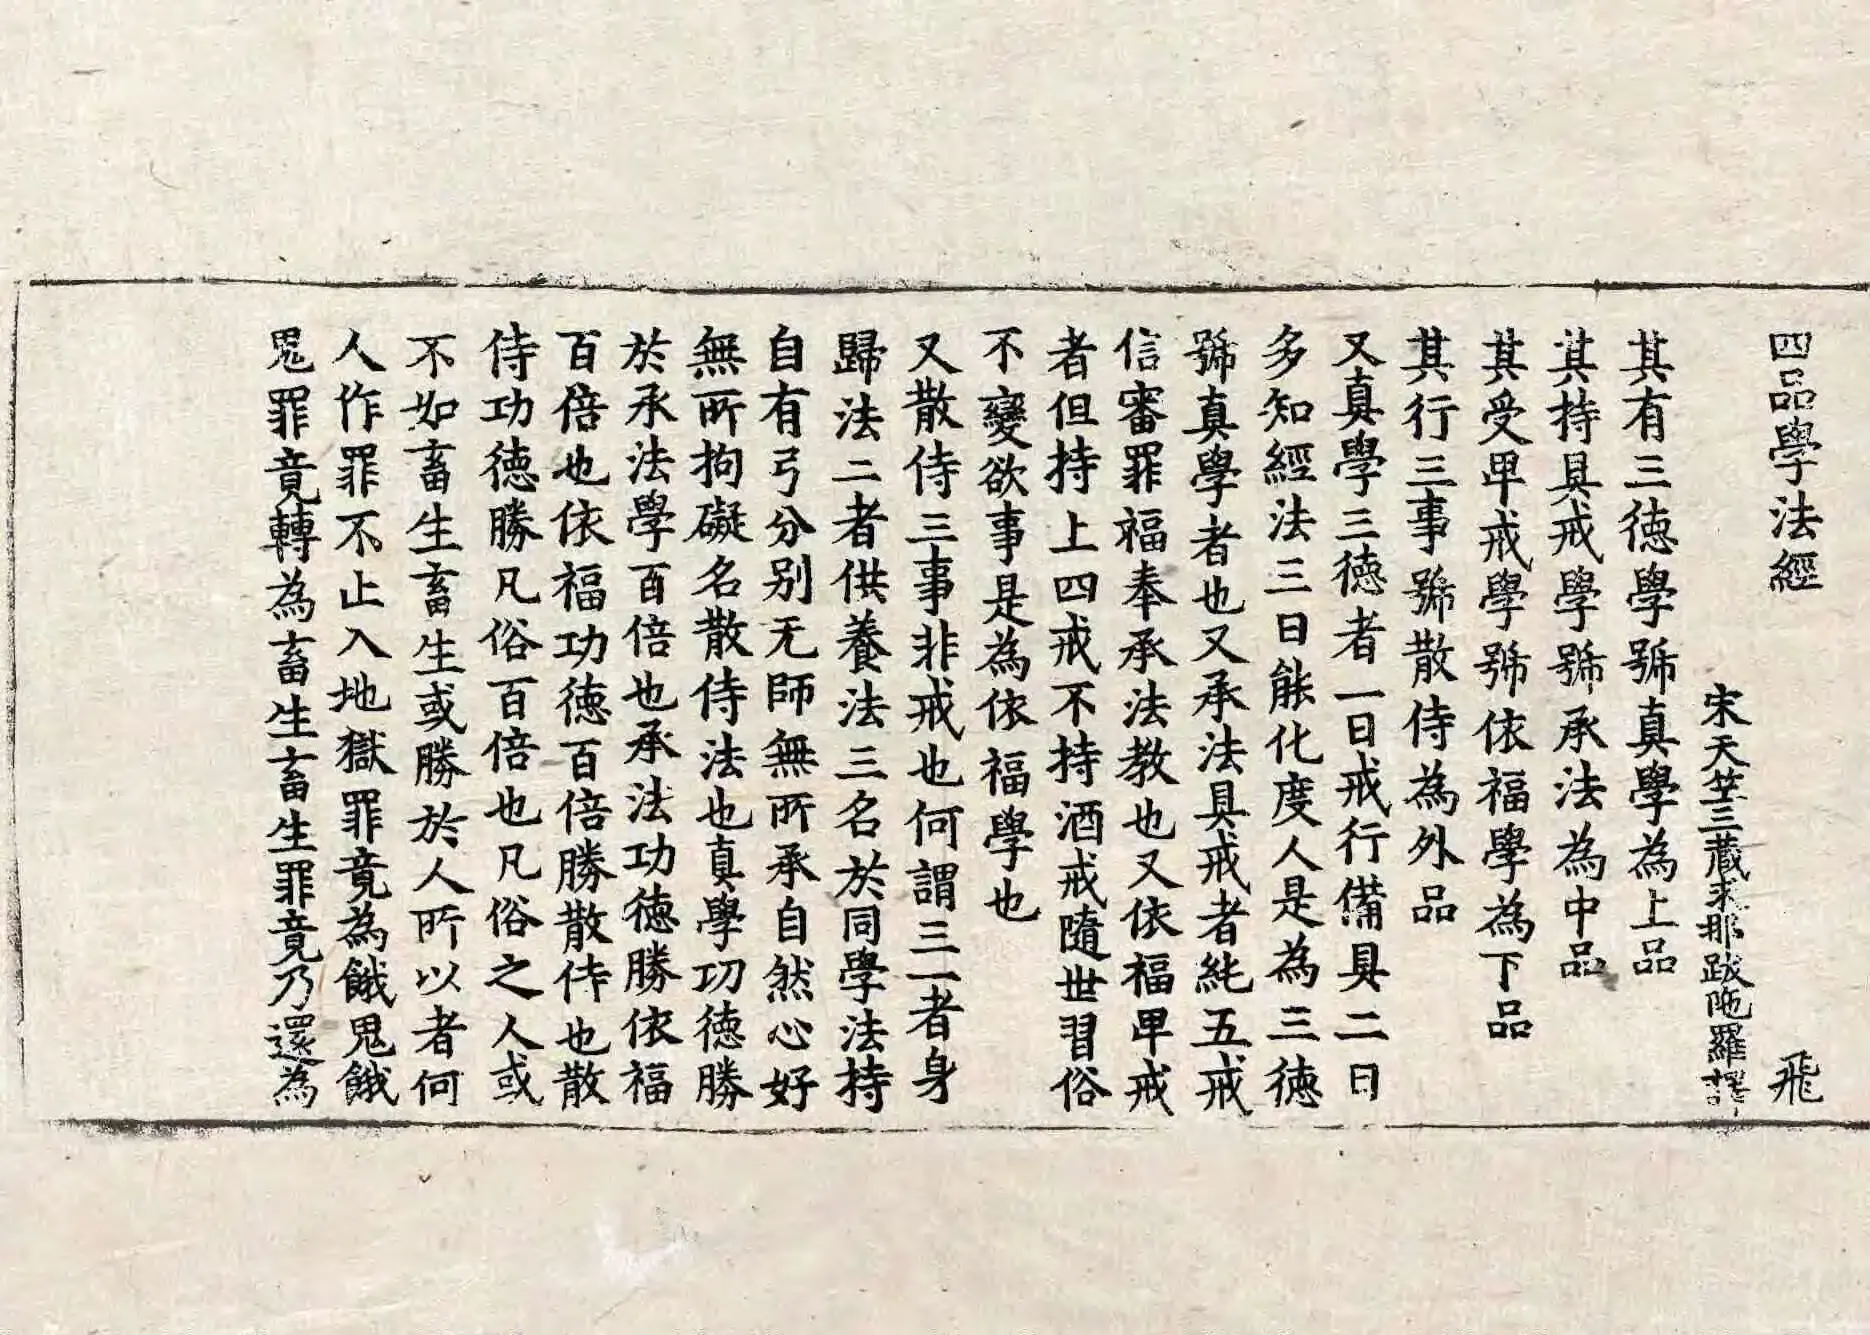 四品學法經　飛
宋天竺三藏求那跋陁羅譯
其有三德學號真學為上品
其持具戒學號承法為中品
其受卑戒學號依福學為下品
其行三事號散侍為外品
又真學三德者一曰戒行備具二曰
多知經法三曰能化度人是為三德
號真學者也又承法具戒者純五戒
信審罪福奉承法教也又依福卑戒
者但持上四戒不持酒戒隨世習俗
不變欲事是為依福學也
又散侍三事非戒也何謂三一者身
歸法二者供養法三名於同學法持
自有弓分別无師無所承自然心好
無所拘礙名散侍法也真學功德勝
於承法學百倍也承法功德勝依福
百倍也依福功德百倍勝散侍也散
侍功德勝凡俗百倍也凡俗之人或
不如畜生畜生或勝於人所以者何
人作罪不止入地獄罪竟為餓鬼餓
鬼罪竟轉為畜生畜生罪竟乃還為